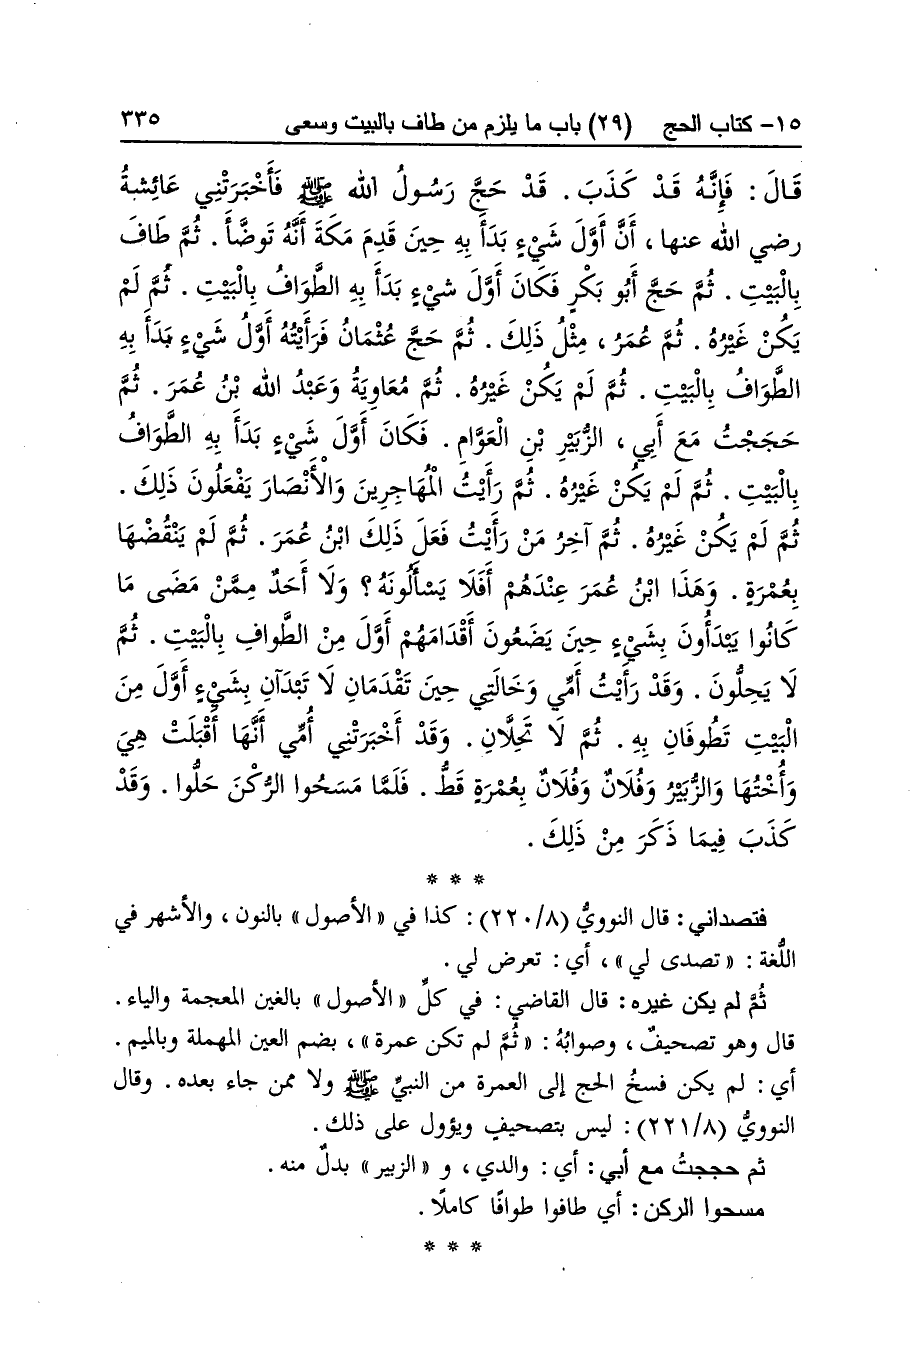 ١٥- كتاب الحج (٢٩) باب ما يلزم من طاف بالبيت وسعى ٣٣٥
قَالَ : فَإِنَّهُ قَدْ كَذَبَ . قَدْ حَجَّ رَسُولُ الله ﷺ فَأَخْبَرَتْنِي عَائِشَةُ
رضي الله عنها ، أَنَّ أَوَّلَ شَيْءٍ بَدَأَ بِهِ حِينَ قَدِمَ مَكَةَ أَنَّهُ تَوضَّأَ . ثُمَّ طَافَ
بِالْبَيْتِ . ثُمَّ حَجَّ أَبُو بَكْرٍ فَكَانَ أَوَّلَ شيْءٍ بَدَأَ بِهِ الطَّوَافُ بِالْبَيْتِ . ثُمَّ لَمْ
يَكُنْ غَيْرُهُ . ثُمَّ عُمَرُ ، مِثْلُ ذَلِكَ . ثُمَّ حَجَّ عُثْمَانُ فَرَأَيْتُهُ أَوَّلُ شَيْءٍ بَدَأَ بِهِ
الطَّوَافُ بِالْبَيْتِ . ثُمَّ لَمْ يَكُنْ غَيْرُهُ . ثُمَّ مُعَاوِيَةُ وَعَبْدُ الله بْنُ عُمَرَ . ثُمَّ
حَجَجْتُ مَعَ أَبِي ، الزُّبَيْرِ بْنِ الْعَوَّامِ . فَكَانَ أَوَّلَ شَيْءٍ بَدَأَ بِهِ الطَّوَافُ
بِالْبَيْتِ . ثُمَّ لَمْ يَكُنْ غَيْرُهُ . ثُمَّ رَأَيْتُ الْمُهَاجِرِينَ وَالْأَنْصَارَ يَفْعَلُونَ ذَلِكَ .
ثُمَّ لَمْ يَكُنْ غَيْرُهُ . ثُمَّ آخِرُ مَنْ رَأَيْتُ فَعَلَ ذَلِكَ ابْنُ عُمَرَ . ثُمَّ لَمْ يَنْقُضْهَا
بِعُمْرَةٍ . وَهَذَا ابْنُ عُمَرَ عِنْدَهُمْ أَفَلَا يَسْأَلُونَهُ ؟ وَلَا أَحَدٌ مِمَّنْ مَضَى مَا
كَانُوا يَبْدَأُونَ بِشَيْءٍ حِينَ يَضَعُونَ أَقْدَامَهُمْ أَوَّلَ مِنْ الطَّوافِ بِالْبَيْتِ . ثُمَّ
لَا يَحِلُّونَ . وَقَدْ رَأَيْتُ أُمِّي وَخَالَتِي حِينَ تَقْدَمَانِ لَا تَبْدَآنِ بِشَيْءٍ أَوَّلَ مِنَ
الْبَيْتِ تَطُوفَانِ بِهِ . ثُمَّ لَا تَحِلَّانِ . وَقَدْ أَخْبَرَتْنِي أُمِّي أَنَّهَا أَقْبَلَتْ هِيَ
وَأُخْتُهَا وَالزُّبَيْرُ وَفُلَانٌ وَفُلَانٌ بِعُمْرَةٍ قَطُّ . فَلَمَّا مَسَحُوا الرُّكْنَ حَلُّوا . وَقَدْ
كَذَبَ فِيمَا ذَكَرَ مِنْ ذَلِكَ .
* * *
فتصداني : قال النوويُّ (٢٢٠/٨) : كذا في « الأصول » بالنون ، والأشهر في
اللُّغة : « تصدى لي » ، أي : تعرض لي .
ثُمَّ لم يكن غيره : قال القاضي : في كلِّ « الأصول » بالغين المعجمة والياء .
قال وهو تصحيفٌ ، وصوابُهُ : « ثُمَّ لم تكن عمرة » ، بضم العين المهملة وبالميم .
أي : لم يكن فسخُ الحج إلى العمرة من النبيِّ ﷺ ولا ممن جاء بعده . وقال
النوويُّ (٢٢١/٨) : ليس بتصحيفٍ ويؤول على ذلك .
ثم حججتُ مع أبي : أي : والدي ، و « الزبير » بدلٌ منه .
مسحوا الركن : أي طافوا طوافًا كاملًا .
* * *